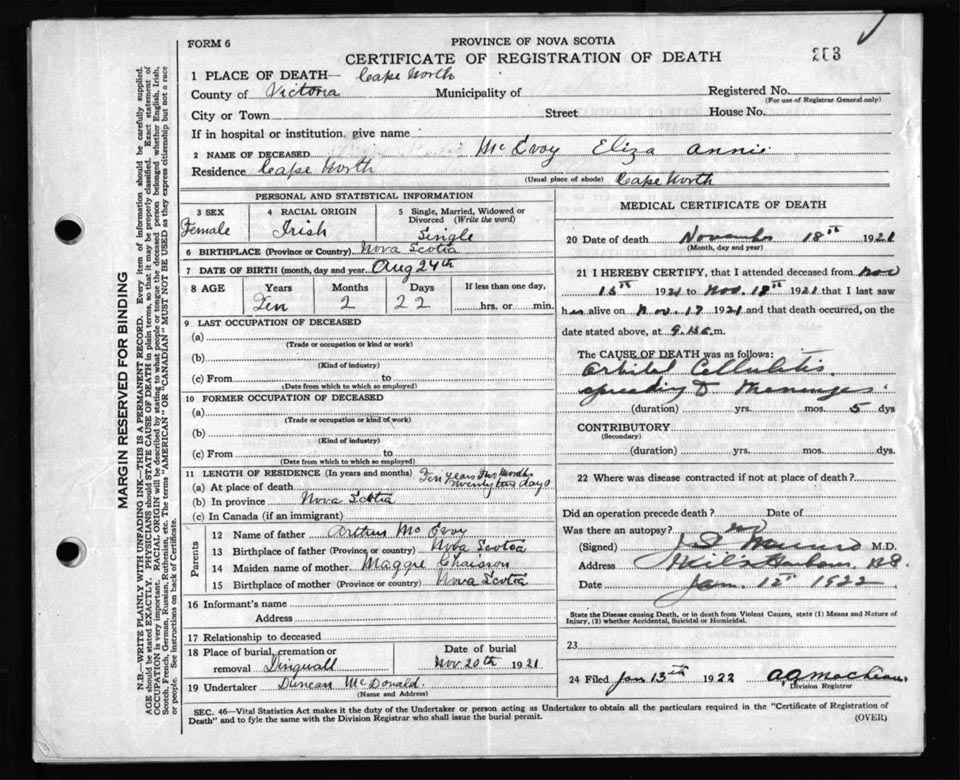 FORM 6
PROVINCE OF NOVA SCOTIA
CERTIFICATE OF REGISTRATION OF DEATH
203
1 PLACE OF DEATH— Cape North
County of Victoria Municipality of Registered No.
(For use of Registrar General only)
City or Town Street House No.
If in hospital or institution, give name
2 NAME OF DECEASED McEvoy Eliza Annie
Residence Cape North (Usual place of abode) Cape North
PERSONAL AND STATISTICAL INFORMATION
3 SEX Female
4 RACIAL ORIGIN Irish
5 Single, Married, Widowed or Divorced (Write the word) Single
6 BIRTHPLACE (Province or Country) Nova Scotia
7 DATE OF BIRTH (month, day and year) Aug 24th
8 AGE Years Months Days If less than one day,
Ten 2 22 hrs. or min.
9 LAST OCCUPATION OF DECEASED
(a)
(Trade or occupation or kind or work)
(b)
(Kind of industry)
(c) From to
(Date from which to which so employed)
10 FORMER OCCUPATION OF DECEASED
(a)
(Trade or occupation or kind of work)
(b)
(Kind of industry)
(c) From to
(Date from which to which so employed)
11 LENGTH OF RESIDENCE (In years and months) Ten years Two Months
(a) At place of death Twenty two days
(b) In province Nova Scotia
(c) In Canada (if an immigrant)
Parents
12 Name of father Arthur McEvoy
13 Birthplace of father (Province or country) Nova Scotia
14 Maiden name of mother Maggie Chaisson
15 Birthplace of mother (Province or country) Nova Scotia
16 Informant's name
Address
17 Relationship to deceased
18 Place of burial, cremation or removal Dingwall
Date of burial Nov 20th 1921
19 Undertaker Duncan McDonald
(Name and Address)
MEDICAL CERTIFICATE OF DEATH
20 Date of death November 18th 1921
(Month, day and year)
21 I HEREBY CERTIFY, that I attended deceased from Nov
15th 1921 to Nov. 18th 1921 that I last saw
her alive on Nov. 17 1921 and that death occurred, on the
date stated above, at m.
The CAUSE OF DEATH was as follows:
Orbital Cellulitis
spreading to Meninges.
(duration) yrs. mos. 5 dys
CONTRIBUTORY
(Secondary)
(duration) yrs. mos. dys.
22 Where was disease contracted if not at place of death?
Did an operation precede death? Date of
Was there an autopsy? no
(Signed) Munro M.D.
Address Neil's Harbour, N.S.
Date Jan. 12th 1922
State the Disease causing Death, or in death from Violent Causes, state (1) Means and Nature of
Injury, (2) whether Accidental, Suicidal or Homicidal.
23
24 Filed Jan 13th 1922
Division Registrar
SEC. 46—Vital Statistics Act makes it the duty of the Undertaker or person acting as Undertaker to obtain all the particulars required in the "Certificate of Registration of
Death" and to fyle the same with the Division Registrar who shall issue the burial permit.
(OVER)
MARGIN RESERVED FOR BINDING
N.B.—WRITE PLAINLY WITH UNFADING INK—THIS IS A PERMANENT RECORD. Every item of information should be carefully supplied.
AGE should be stated EXACTLY. PHYSICIANS should STATE CAUSE OF DEATH in plain terms, so that it may be properly classified. Exact statement of
OCCUPATION is very important. RACIAL ORIGIN will be described by stating to what people or tongue the deceased person belonged whether English, Irish,
Scotch, French, German, Russian, Ruthenian, etc. The terms "AMERICAN" OR "CANADIAN" MUST NOT BE USED as they express citizenship but not a race
or people. See instructions on back of Certificate.